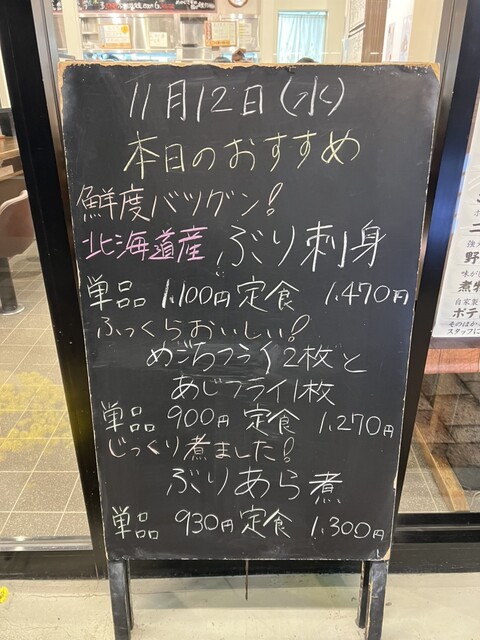 11月12日(水)
本日のおすすめ
鮮度バツグン!
北海道産 ぶり刺身
単品 1,100円 定食 1,470円
ふっくらおいしい!
めごちフライ2枚と
あじフライ1枚
単品 900円 定食 1,270円
じっくり煮ました!
ぶりあら煮
単品 930円 定食 1,300円
野
煮物
自家製
ポテ
そのほか
スタッフに